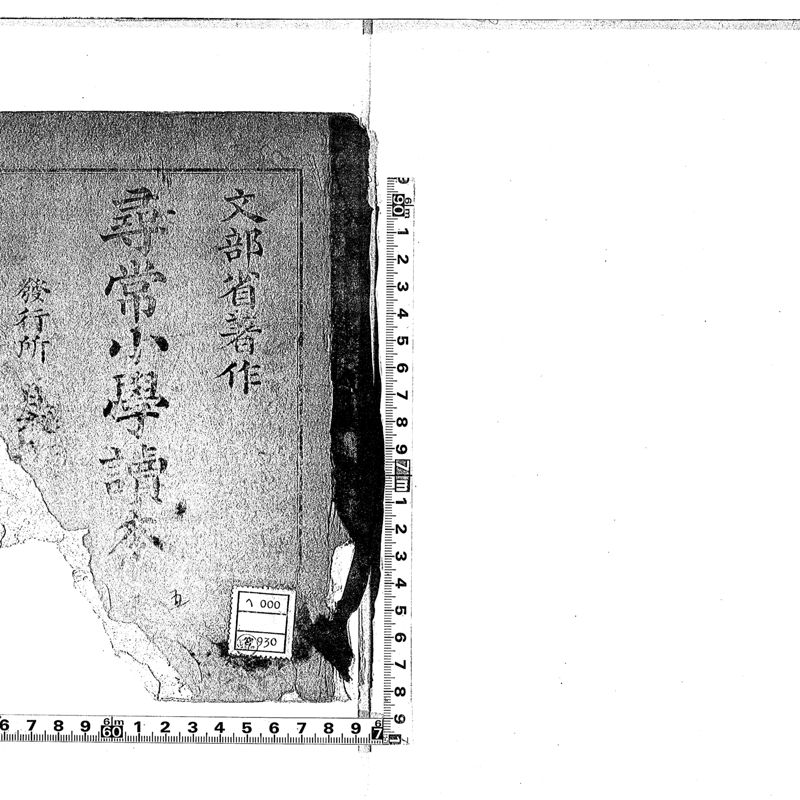 文部省著作
尋常小學讀本
發行所
へ 000
930
9 6m 90 1 2 3 4 5 6 7 8 9 7 m 1 2 3 4 5 6 7 8 9
6 7 8 9 6m 60 1 2 3 4 5 6 7 8 9 6 7